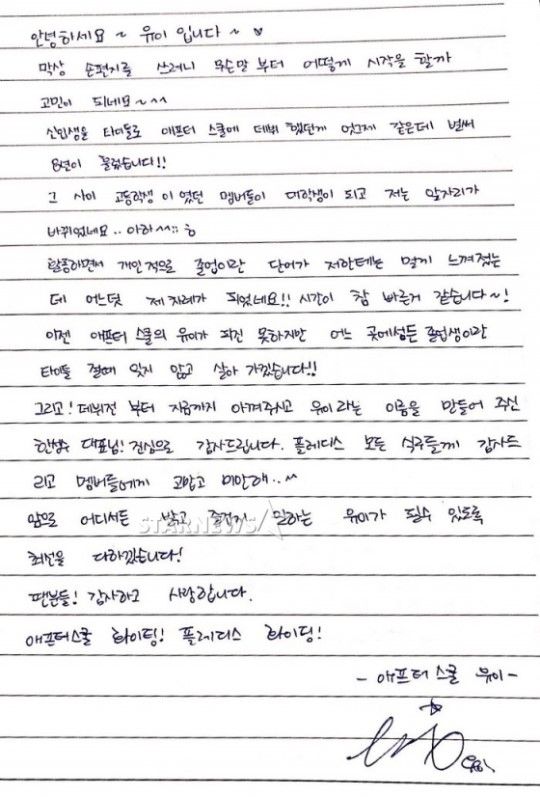 안녕하세요~ 유이 입니다~ ♥
막상 손편지를 쓰려니 무슨말 부터 어떻게 시작을 할까
고민이 되네요~^^
신인생을 타이틀로 애프터 스쿨에 데뷔 했던게 엊그제 같은데 벌써
8년이 흘렀습니다!!
그 사이 고등학생 이였던 멤버들이 대학생이 되고 저는 앞자리가
바뀌었네요.. 아하^^;; ㅎ
활동하면서 개인적으로 졸업이란 단어가 저한테는 멀게 느껴졌는
데 어느덧 제 차례가 되었네요!! 시간이 참 빠른거 같습니다~!
이젠 애프터 스쿨의 유이가 되진 못하지만 어느 곳에서든 졸업생이란
타이틀 절때 잊지 않고 살아 가겠습니다!!
그리고! 데뷔전 부터 지금까지 아껴주시고 유이라는 이름을 만들어 주신
한성수 대표님! 진심으로 감사드립니다. 플레디스 모든 식구들께 감사드
리고 멤버들에게 고맙고 미안해..^^
앞으로 어디서든 밝고 즐겁게 일하는 유이가 될수 있도록
STARNEWS
최선을 다하겠습니다!
팬분들! 감사하고 사랑합니다.
애프터스쿨 화이팅! 플레디스 화이팅!
- 애프터 스쿨 유이 -